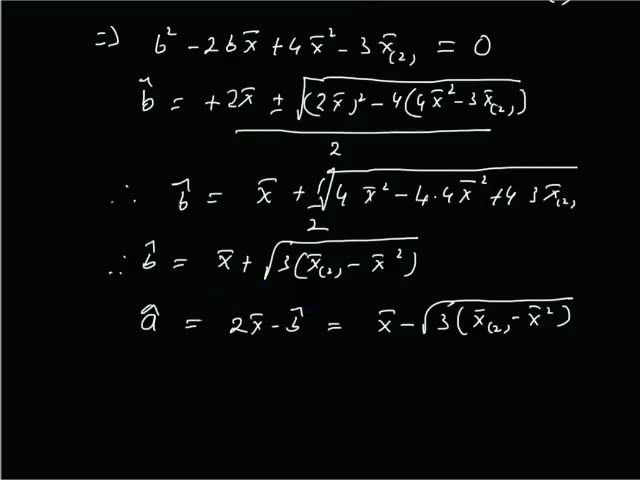 ⇒) b² - 2b x̄ + 4x̄² - 3x̄₍₂₎ = 0
b̂ = +2x̄ ± √((2x̄)² - 4(4x̄² - 3x̄₍₂₎)) / 2
∴ b̂ = x̄ + ½√(4 x̄² - 4·4x̄² + 4 3x̄₍₂₎)
∴ b̂ = x̄ + √(3(x̄₍₂₎ - x̄²))
â = 2x̄ - b̂ = x̄ - √(3(x̄₍₂₎ - x̄²))